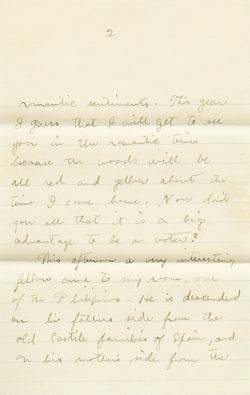 2
romantic sentiments. This year
I guess that I will get to see
you in the romantic time
because the woods will be
all red and yellow about the
time I come home. Now don't
you all that it is a big
advantage to be a voter?
This afternoon a very interesting
fellow came to my room, one
of the Philipinos. He is descended
on his fathers side from the
old Castile families of Spain, and
on his mother's side from the